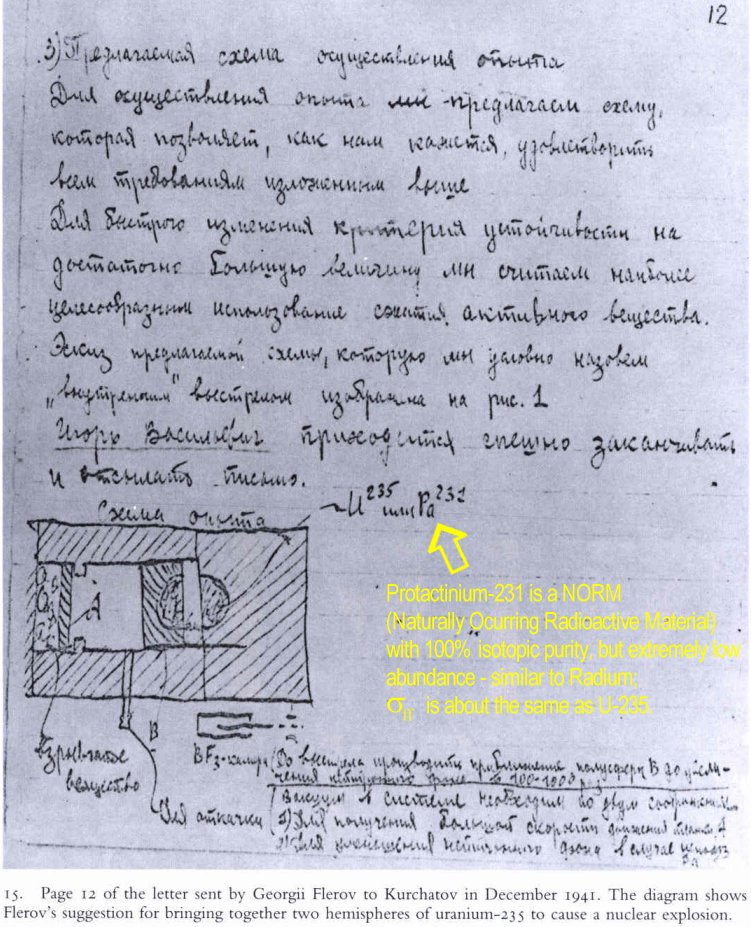 12
3) Предлагаемая схема осуществления опыта
Для осуществления опыта мы предлагаем схему,
которая позволяет, как нам кажется, удовлетворить
всем требованиям изложенным выше
Для быстрого изменения критерия устойчивости на
достаточно большую величину мы считаем наиболее
целесообразным использование сжатия активного вещества.
Эскиз предлагаемой схемы, которую мы условно назовем
„внутренним" выстрелом изображена на рис. 1
Игорь Васильевич приходится спешно заканчивать
и отсылать письмо.
Схема опыта
U235 или Pa231
A
Protactinium-231 is a NORM
(Naturally Ocurring Radioactive Material)
with 100% isotopic purity, but extremely low
abundance - similar to Radium;
σn is about the same as U-235.
B
взрывчатое
вещество
Для откачки
BF3-камера (До выстрела производить приближение полусферы B до увели-
чения нейтронного фона в 100-1000 раз
(Вакуум в системе необходим по двум соображениям
1) Для получения большой скорости движения A
2) Для уменьшения нейтронного фона в случае
Pa
15. Page 12 of the letter sent by Georgii Flerov to Kurchatov in December 1941. The diagram shows
Flerov's suggestion for bringing together two hemispheres of uranium-235 to cause a nuclear explosion.